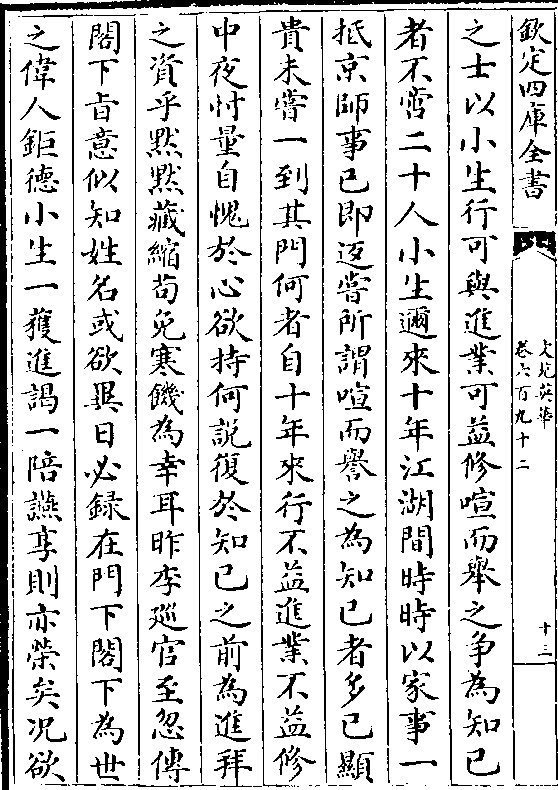 欽定四庫全書
文苑英華
卷六百九十二
十三
之士以小生行可與進業可益修喧而舉之争為知己
者不啻二十人小生邇來十年江湖間時時以家事一
抵京師事已即返嘗所謂喧而譽之為知己者多已顯
貴未嘗一到其門何者自十年來行不益進業不益修
中夜忖量自愧於心欲持何說復於知己之前為進拜
之資乎黙黙藏縮苟免寒饑為幸耳昨李廵官至忽傳
閣下旨意似知姓名或欲異日必録在門下閣下為世
之偉人鉅德小生一獲進謁一陪讌享則亦榮矣况欲